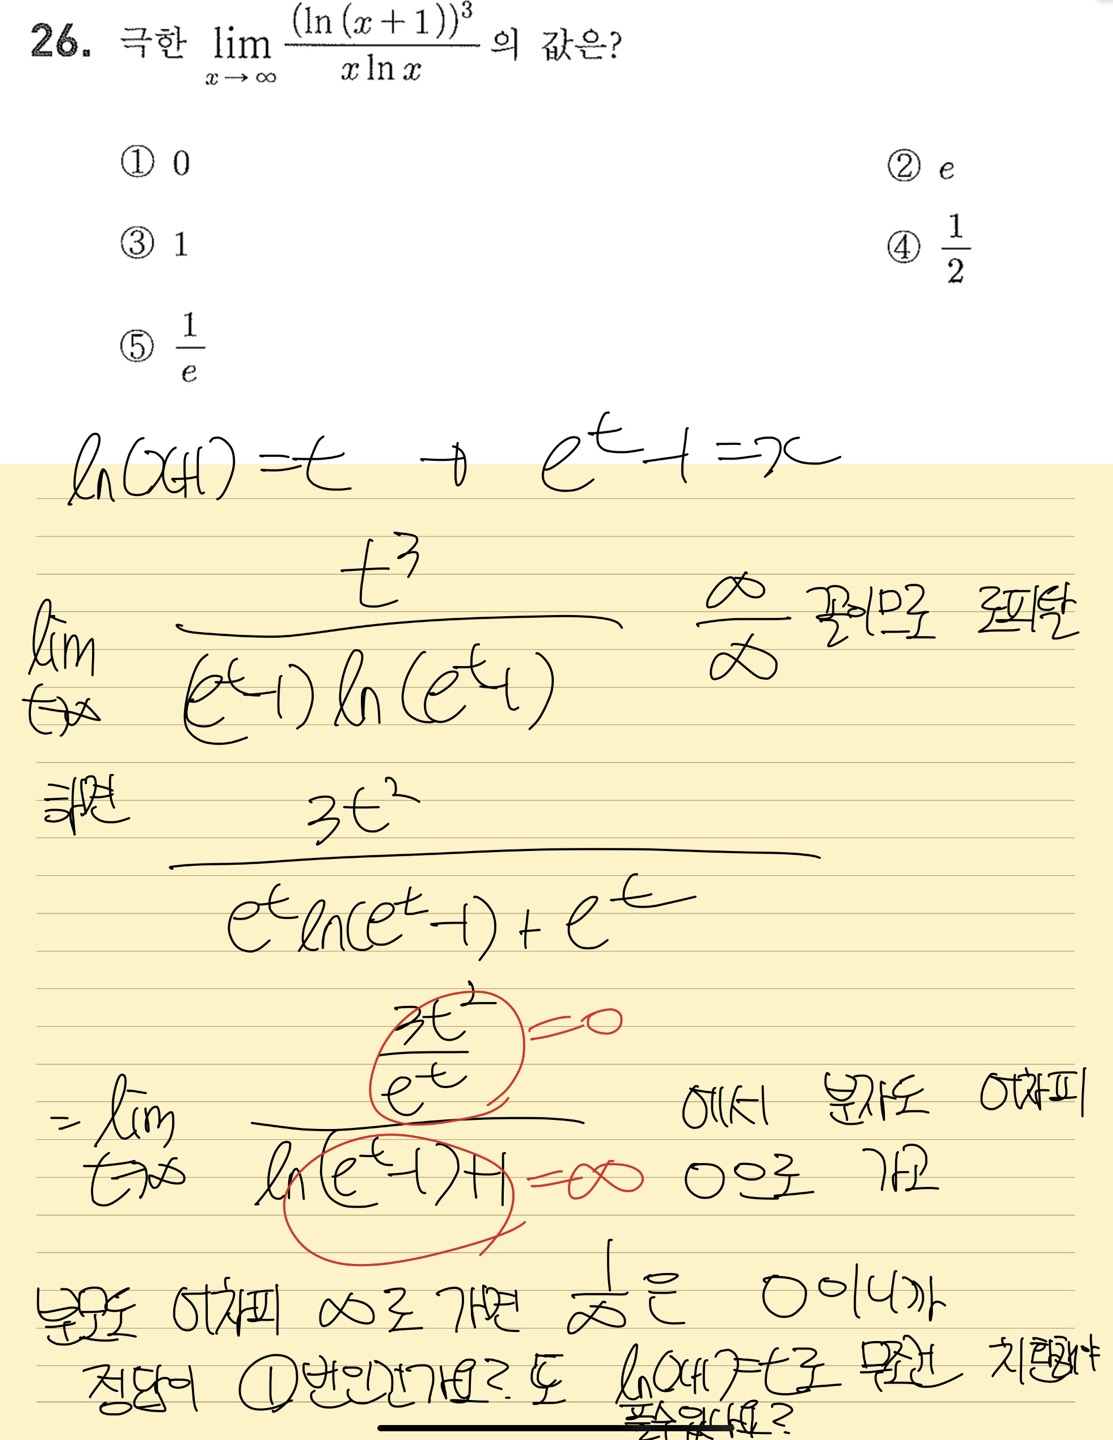 26. 극한 lim x→∞ (ln (x+1))³ / x ln x 의 값은?
① 0 ② e
③ 1 ④ 1/2
⑤ 1/e
ln(x+1) = t → e^t - 1 = x
lim t→∞ t³ / (e^t-1) ln (e^t-1) ∞/∞ 꼴이므로 로피탈
하면 3t² / e^t ln(e^t-1) + e^t
= lim t→∞ (3t²/e^t) / ln(e^t-1)+1 =0 =∞ 에서 분자도 어차피
0으로 가고
분모도 어차피 ∞로 가면 1/∞은 0이니까
정답이 ①번인건가요? 또 ln(x+1)=t로 무조건 치환해야
풀수있나요?